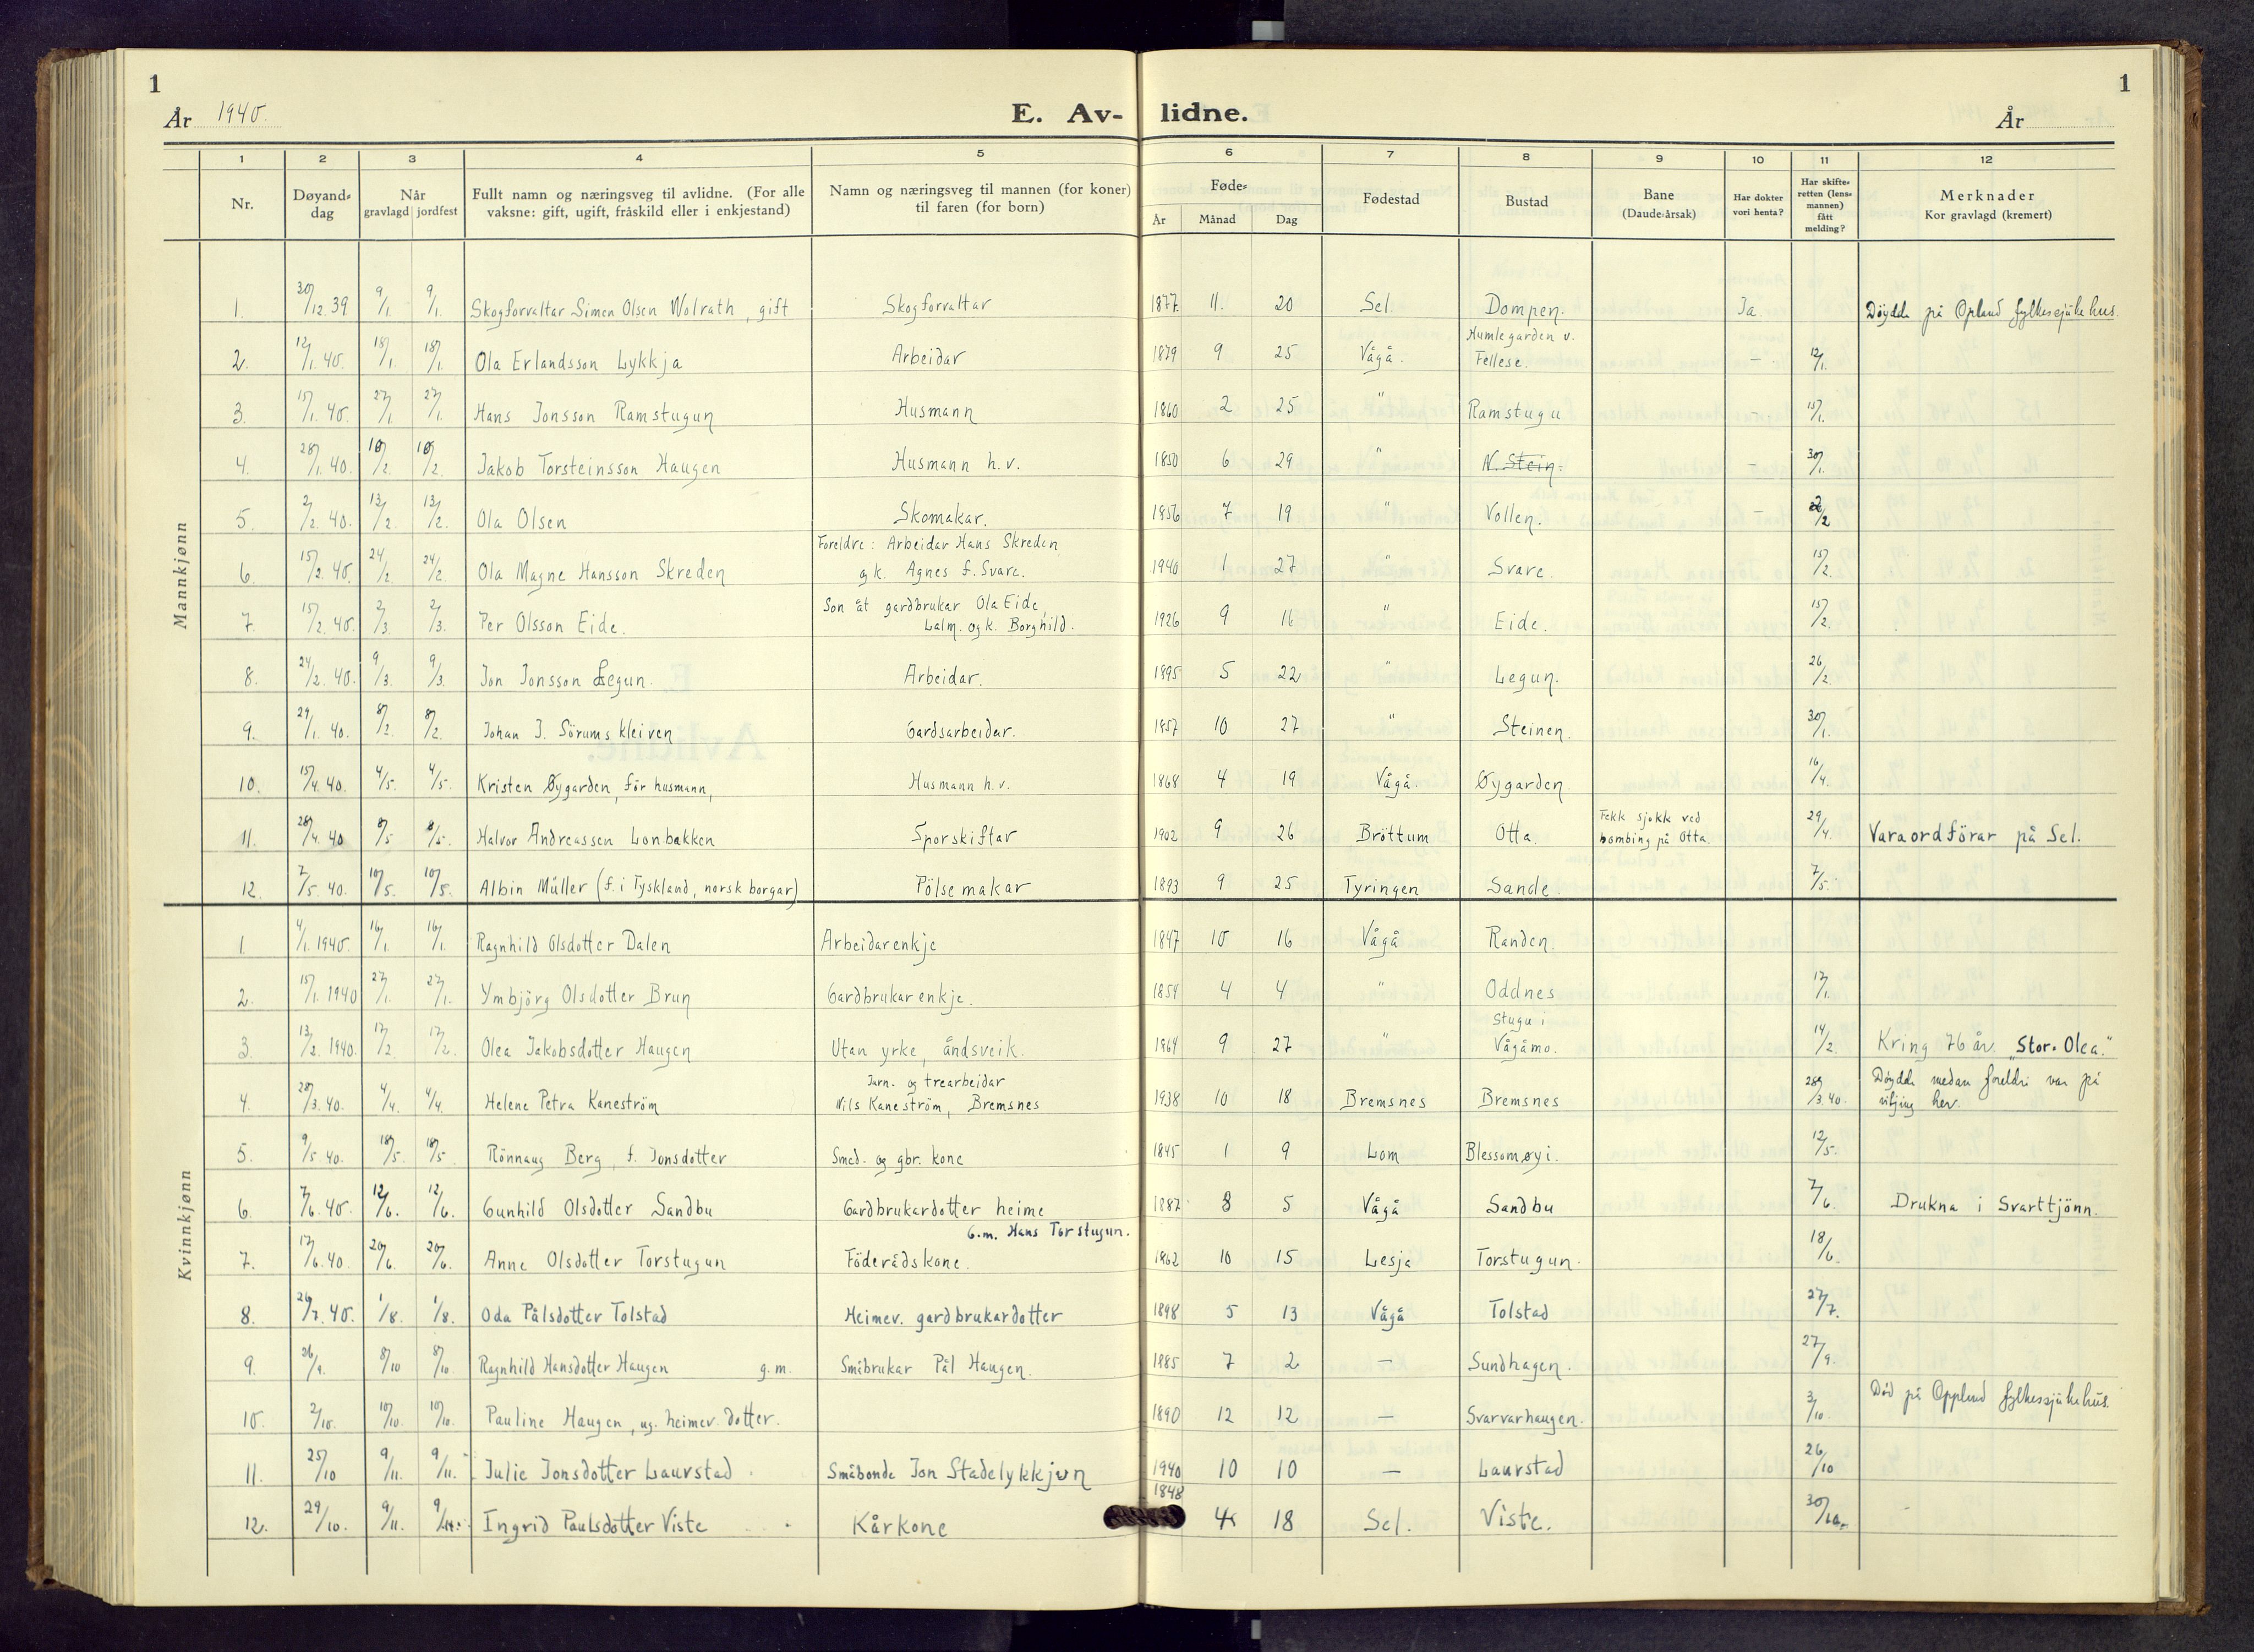 1
År 1940.
E. Av-
lidne.
År
1
1 2 3 4 5 6 7 8 9 10 11 12
Nr.
Døyand-dag
Når gravlagd jordfest
Fullt namn og næringsveg til avlidne. (For alle vaksne: gift, ugift, fråskild eller i enkjestand)
Namn og næringsveg til mannen (for koner) til faren (for born)
Føde-
År Månad Dag
Fødestad
Bustad
Bane (Daude-årsak)
Har dokter vori henta?
Har skifte-retten (lens-mannen) fått melding?
Merknader
Kor gravlagd (kremert)
Mannkjønn
1. 30/12.39 9/1 9/1. Skogforvaltar Simen Olsen Wolrath, gift Skogforvaltar 1877. 11. 20 Sel. Dompen. Ja. Döydde på Opland fylkessjukehus.
2. 12/1.40. 18/1. 18/1. Ola Erlandsson Lykkja Arbeidar 1879 9 25 Vågå. Humlegarden v. Fellese. – 12/1.
3. 15/1.40. 27/1 27/1. Hans Jonsson Ramstugun Husmann 1860 2 25 " Ramstugu 15/1.
4. 28/1.40. 10/2. 10/2. Jakob Torsteinsson Haugen Husmann h.v. 1850 6 29 " N. Stein. – 30/1.
5. 2/2.40. 13/2. 13/2. Ola Olsen Skomakar. 1856 7 19 " Vollen. – 2/2
6. 15/2.40. 24/2. 24/2. Ola Magne Hansson Skreden Foreldre: Arbeidar Hans Skreden og k. Agnes f. Svare. 1940 1 27 " Svare. 15/2.
7. 15/2.40. 2/3. 2/3. Per Olsson Eide. Son åt gardbrukar Ola Eide, Lalm. og k. Borghild. 1926 9 16 " Eide. 15/2.
8. 24/2.40. 9/3. 9/3. Jon Jonsson Legun. Arbeidar. 1895 5 22 " Legun. 26/2
9. 29/1.40. 8/2. 8/2. Johan J. Sörumskleiven Gardsarbeidar. 1857 10 27 " Steinen. 30/1.
10. 15/4.40. 4/5. 4/5. Kristen Øygarden, för husmann, Husmann h.v. 1868 4 19 Vågå. Øygarden. 16/4.
11. 28/4.40 8/5 8/5. Halvor Andreassen Lonbakken Sporskiftar 1902 9 26 Bröttum Otta. Fekk sjokk ved bombing på Otta. 29/4. Varaordförar på Sel.
12. 7/5.40. 10/5. 10/5. Albin Müller (f. i Tyskland, norsk borgar) Pölsemakar 1893 9 25 Tyringen Sande 7/5.
Kvinnkjønn
1. 4/1.1940. 16/1. 16/1. Ragnhild Olsdotter Dalen Arbeidarenkje 1847 10 16 Vågå Randen.
2. 15/1.1940 27/1. 27/1. Ymbjörg Olsdotter Brun Gardbrukarenkje. 1854 4 4 " Oddnes 17/1.
3. 13/2.1940. 17/2 17/2. Olea Jakobsdotter Haugen Utan yrke, åndsveik. 1864 9 27 " Stugu i Vågåmo. 14/2. Kring 76 år. „Stor-Olea."
4. 28/3.40. 4/4. 4/4. Helene Petra Kaneström Jarn- og trearbeidar Nils Kaneström, Bremsnes 1938 10 18 Bremsnes Bremsnes 28/3.40. Döydde medan foreldri var på vitjing her.
5. 9/5.40. 18/5. 18/5. Rönnaug Berg, f. Jonsdotter Smed- og gbr. kone 1845 1 9 Lom Blessomøyi. 12/5.
6. 7/6.40. 12/6. 12/6. Gunhild Olsdotter Sandbu Gardbrukardotter heime 1887 8 5 Vågå Sandbu 7/6. Drukna i Svarttjönn.
7. 17/6.40. 20/6. 20/6. Anne Olsdotter Torstugun G.m. Hans Torstugun. Föderådskone. 1862 10 15 Lesja Torstugun. 18/6.
8. 26/7.40. 1/8. 1/8. Oda Pålsdotter Tolstad Heimev. gardbrukardotter 1898 5 13 Vågå Tolstad 27/7.
9. 26/9. 8/10 8/10. Ragnhild Hansdotter Haugen g.m. Småbrukar Pål Haugen. 1885 7 2 – Sundhagen. 27/9.
10. 2/10. 10/10. 10/10. Pauline Haugen, ug. heimev. dotter. 1890 12 12 – Svarvarhaugen. 3/10. Död på Oppland fylkessjukehus.
11. 25/10 9/11. 9/11. Julie Jonsdotter Laurstad Småbonde Jon Stadelykkjun 1940 10 10 – Laurstad 26/10
12. 29/10. 9/11. 9/11. Ingrid Paulsdotter Viste Kårkone 1848 4 18 Sel. Viste. 30/10.